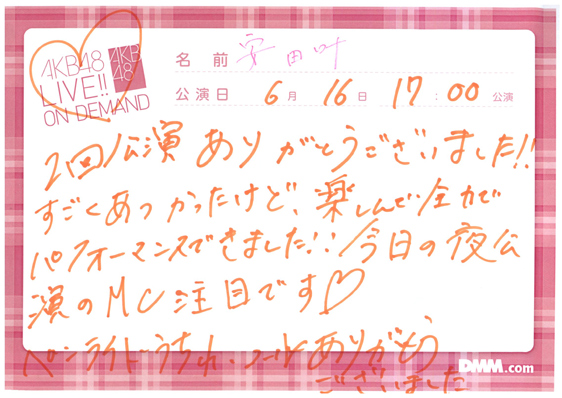 AKB48
LIVE!!
ON DEMAND
AKB
48
名前 安田叶
公演日 6月 16日 17:00 公演
2回公演ありがとうございました!!
すごくあつかったけど、楽しんで全力で
パフォーマンスできました!! 今日の夜公
演のMC注目です♡
ペンライトうちわ、コールありがとう
ございました
DMM.com